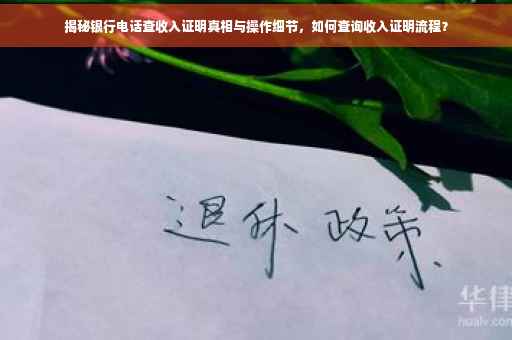 揭秘银行电话查收入证明真相与操作细节，如何查询收入证明流程？
退休 政策
华律
hualv.com